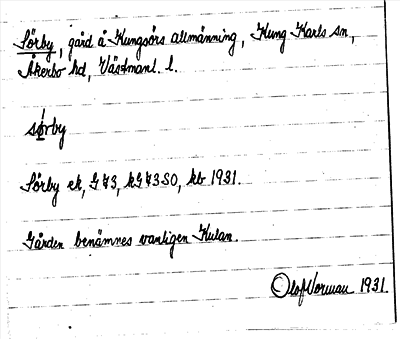 Sörby, gård å Kungsörs allmänning, Kung Karls sn,
Åkerbo hd, Västmanl. l.
sörby
Sörby ek, G 43, kG43SO, kb 1931.
Gården benämnes vanligen Kulan.
Olof Norman 1931.